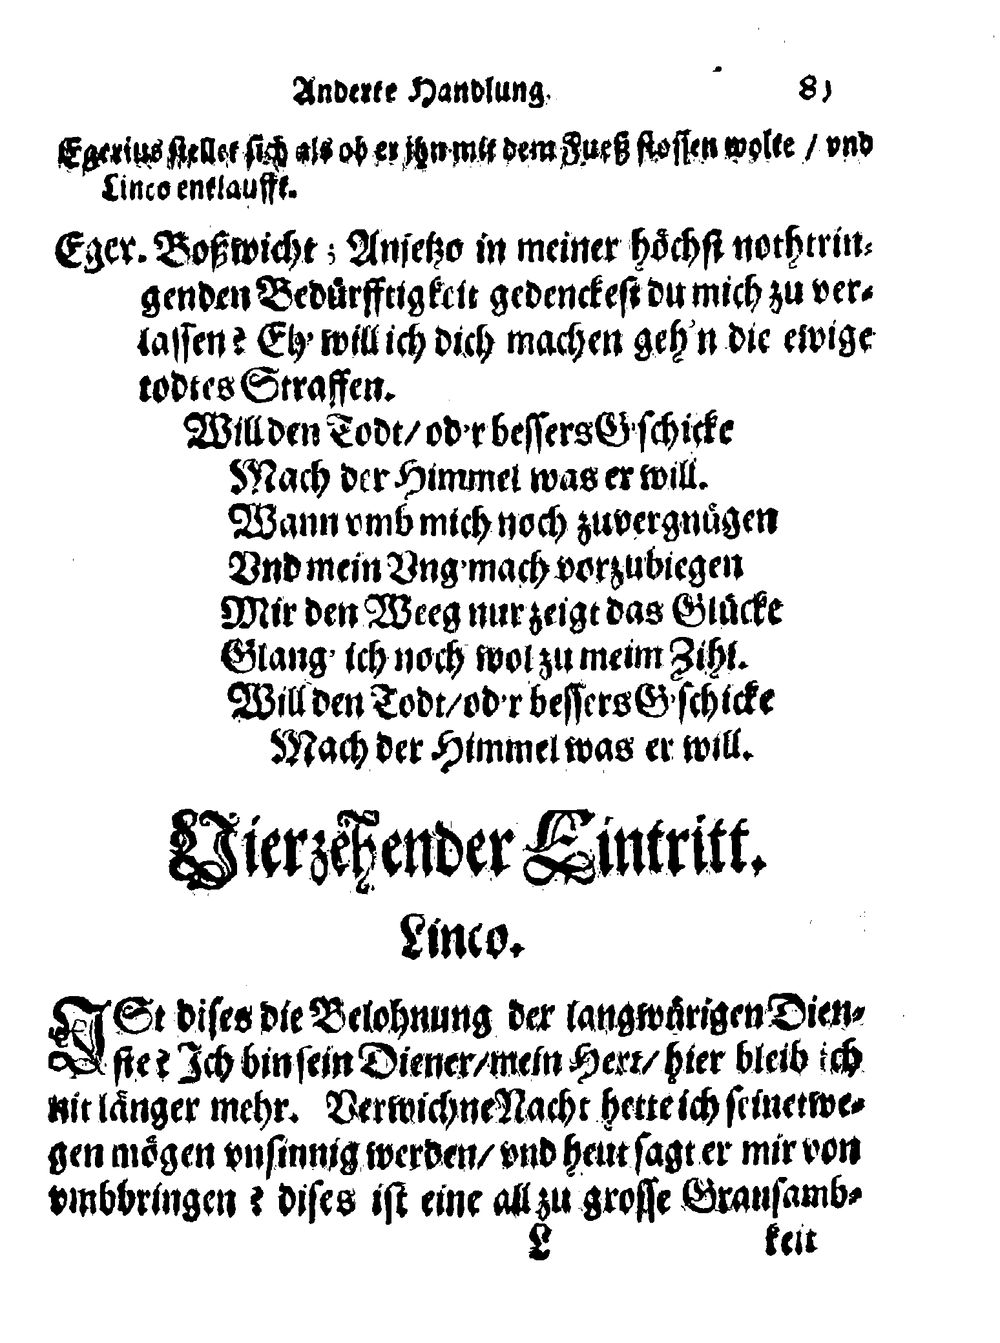 Anderte Handlung. 81
Egerius stellet sich als ob er ihn mit dem Fueß stossen wolte / vnd
Linco entlaufft.
Eger. Boßwicht ; Anjetzo in meiner höchst nothtrin-
genden Bedürfftigkeit gedenckest du mich zu ver-
lassen? Eh' will ich dich machen geh'n die ewige
todtes Straffen.
Will den Todt / od'r bessers G'schicke
Mach der Himmel was er will.
Wann vmb mich noch zuvergnügen
Vnd mein Vng'mach vorzubiegen
Mir den Weeg nur zeigt das Glücke
Glang' ich noch wol zu meim Zihl.
Will den Todt / od'r bessers G'schicke
Mach der Himmel was er will.
Vierzehender Eintritt.
Linco.
ISt dises die Belohnung der langwürigen Dien-
ste? Ich bin sein Diener / mein Herr / hier bleib ich
nit länger mehr. Verwichne Nacht hette ich seinetwe-
gen mögen vnsinnig werden / vnd heut sagt er mir von
vmbbringen? dises ist eine all zu grosse Grausamb-
L keit